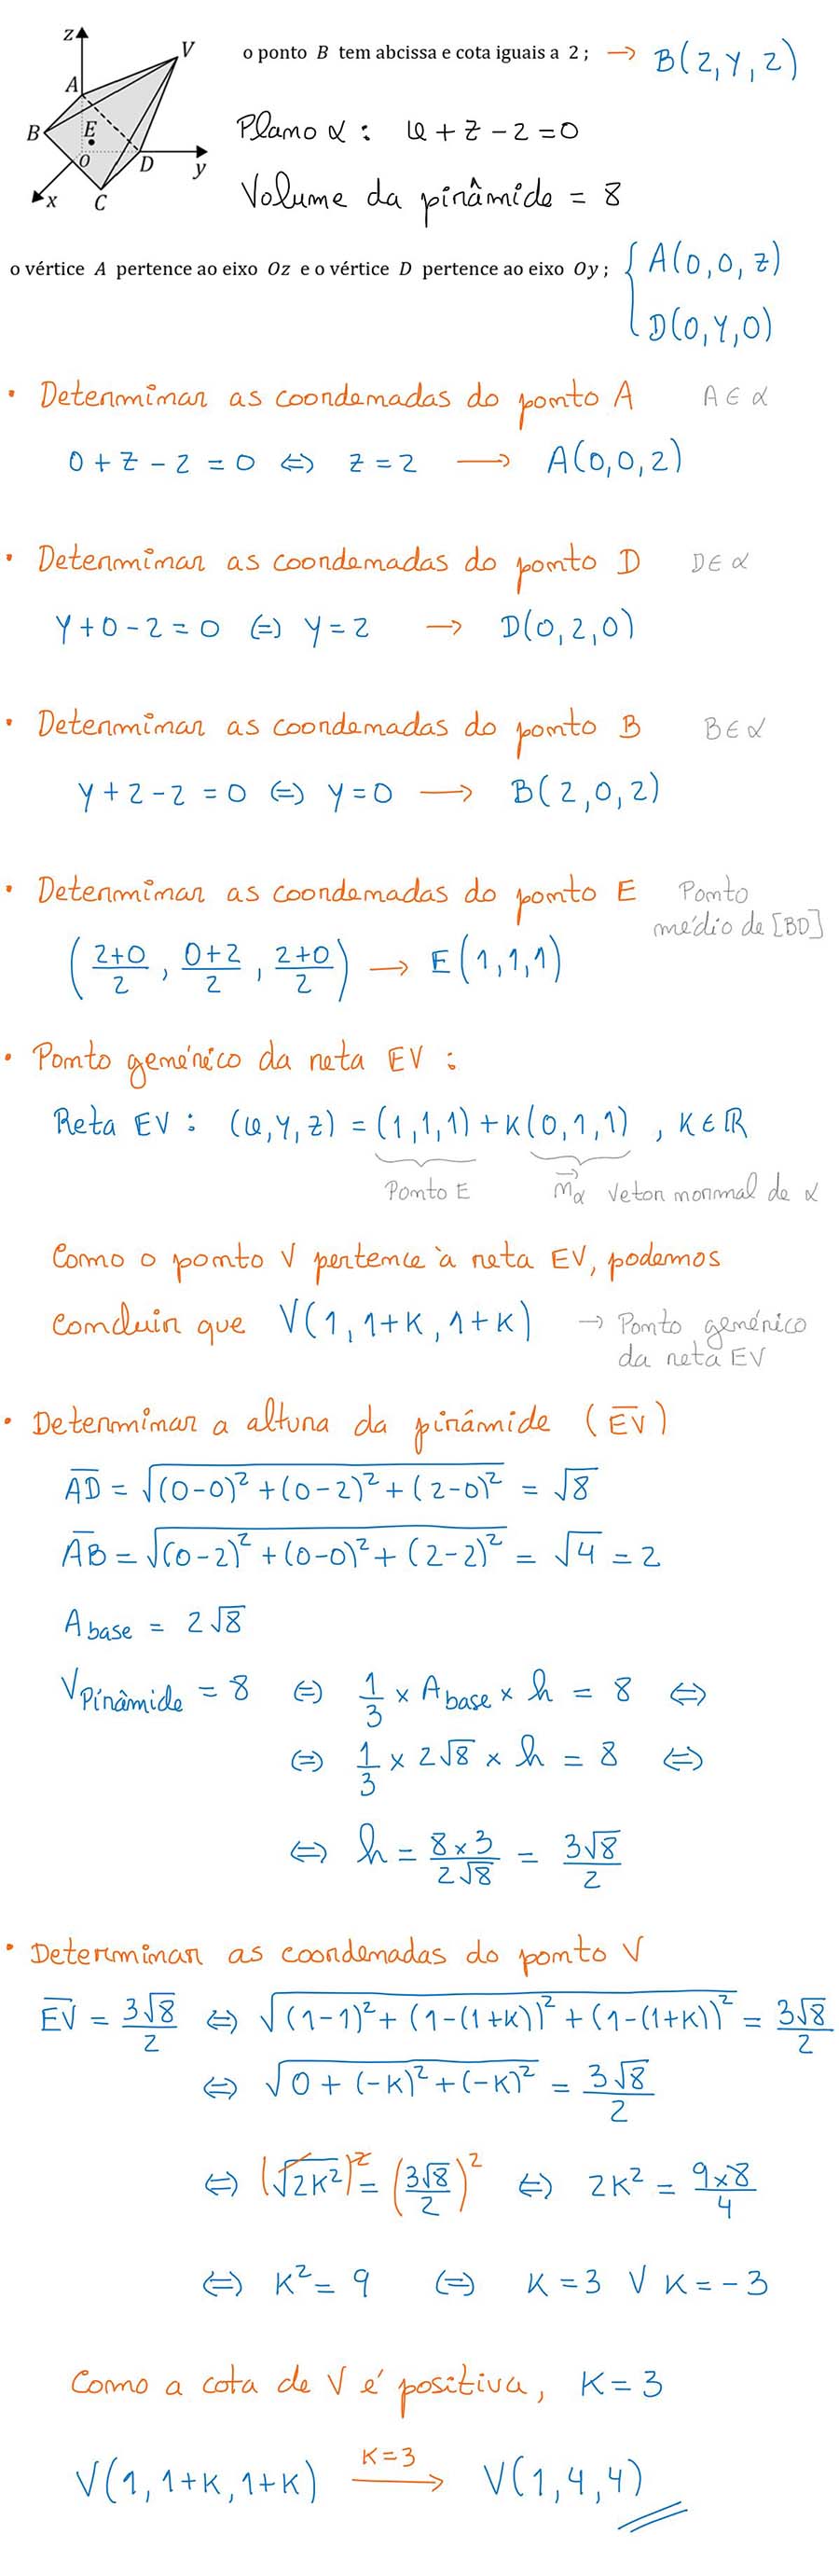 z
V
A
B
E
O
D
y
x
C
o ponto B tem abcissa e cota iguais a 2 ; → B(2,Y,2)
Plano α : x + z - 2 = 0
Volume da pirâmide = 8
o vértice A pertence ao eixo Oz e o vértice D pertence ao eixo Oy ; { A(0,0,z)
D(0,Y,0)
• Determinar as coordenadas do ponto A A ∈ α
0 + z - 2 = 0 ⇔ z = 2 → A(0,0,2)
• Determinar as coordenadas do ponto D D ∈ α
Y + 0 - 2 = 0 ⇔ Y = 2 → D(0,2,0)
• Determinar as coordenadas do ponto B B ∈ α
Y + 2 - 2 = 0 ⇔ Y = 0 → B(2,0,2)
• Determinar as coordenadas do ponto E Ponto
médio de [BD]
((2+0)/2 , (0+2)/2 , (2+0)/2) → E(1,1,1)
• Ponto genérico da reta EV :
Reta EV : (x,Y,z) = (1,1,1) + K(0,1,1) , K ∈ ℝ
Ponto E n⃗α vetor normal de α
Como o ponto V pertence à reta EV, podemos
concluir que V(1, 1+K, 1+K) → Ponto genérico
da reta EV
• Determinar a altura da pirâmide (E̅V̅)
A̅D̅ = √((0-0)² + (0-2)² + (2-0)²) = √8
A̅B̅ = √((0-2)² + (0-0)² + (2-2)²) = √4 = 2
A base = 2√8
V Pirâmide = 8 ⇔ 1/3 × A base × h = 8 ⇔
⇔ 1/3 × 2√8 × h = 8 ⇔
⇔ h = (8×3)/(2√8) = 3√8/2
• Determinar as coordenadas do ponto V
E̅V̅ = 3√8/2 ⇔ √((1-1)² + (1-(1+K))² + (1-(1+K))²) = 3√8/2
⇔ √(0 + (-K)² + (-K)²) = 3√8/2
⇔ (√(2K²))² = (3√8/2)² ⇔ 2K² = (9×8)/4
⇔ K² = 9 ⇔ K = 3 V K = -3
Como a cota de V é positiva, K = 3
V(1, 1+K, 1+K) K=3 → V(1,4,4)